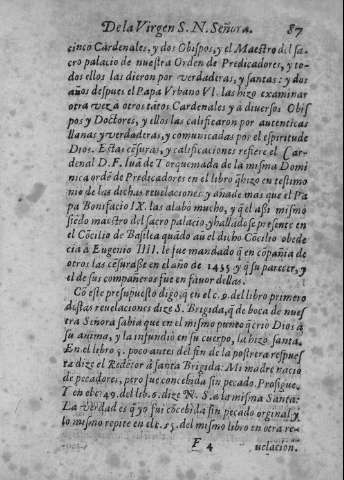 De la Virgen S. N. Señora. 87
cinco Cardenales, y dos Obispos, y el Maestro del sa-
cro palacio de nuestra Orden de Predicadores, y to-
dos ellos las dieron por verdaderas, y santas: y dos
años despues el Papa Vrbano VI. las hizo examinar
otra vez a otros tãtos Cardenales y a diuersos Obis
pos y Doctores, y ellos las calificaron por autenticas
llanas y verdaderas, y comunicadas por el espiritu de
Dios. Estas cẽsuras, y calificaciones refiere el Car-
denal D. F. Iuã de Torquemada de la misma Domi
nica ordẽ de Predicadores en el libro q̃ hizo en testimo
nio de las dichas reuelaciones: y añade mas que el Pa
pa Bonifacio IX. las alabò mucho, y q̃ el assi mismo
siẽdo maestro del sacro palacio, y hallãdose presente en
el Cõcilio de Basilea quãdo aũ el dicho Cõcilio obede
cia a Eugenio IIII. le fue mandado q̃ en cõpañia de
otros las cẽsurasse en el año de 1435. y q̃ su parecer, y
el de sus compañeros fue en fauor dellas.
Cõ este presupuesto digo, q̃ en el c. 9. del libro primero
destas reuelaciones dize S. Brigida, q̃ de boca de nues
tra Señora sabia que en el mismo punto q̃ criò Dios a
su anima, y la infundiò en su cuerpo, la hizo santa.
En el libro 5. poco antes del fin de la postrera respues
ta dize el Redẽtor à santa Brigida: Mi madre nacio
de pecadores, pero fue concebida sin pecado. Prosigue.
Y en el c. 49. del lib. 6. dize N. S. a la misma Santa:
La verdad es q̃ yo fui cõcebida sin pecado orginal: y
lo mismo repite en el c. 55. del mismo libro en otra re-
F 4 uelacion.